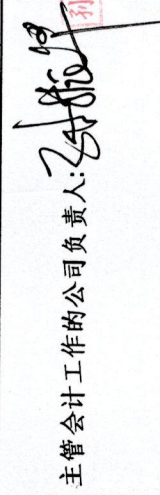 主管会计工作的公司负责人: